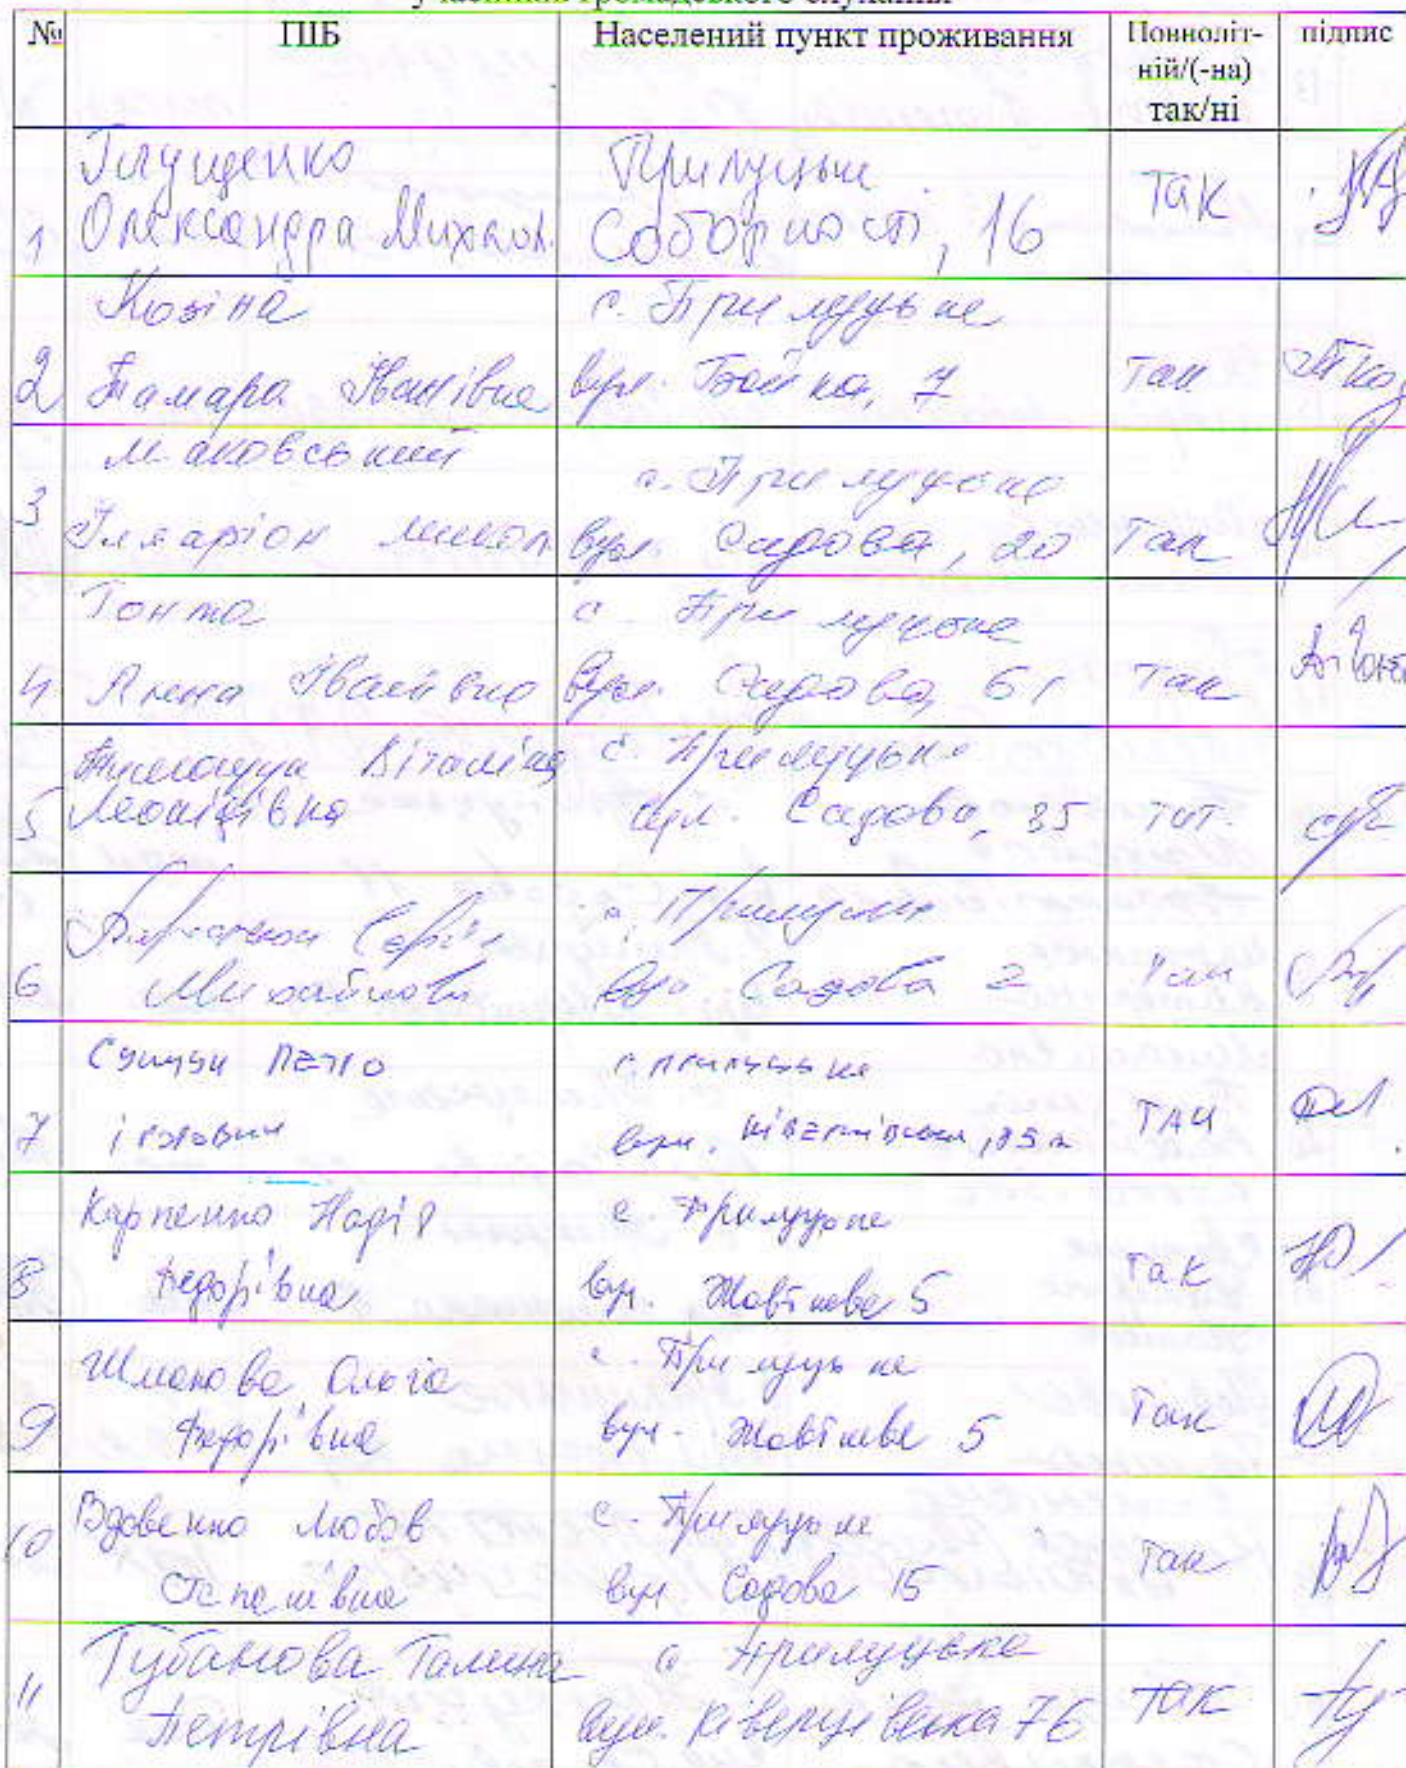 учасників громадського слухання
№ ПІБ Населений пункт проживання Повноліт-ній/(-на) так/ні підпис
1 Глущенко Олександра Михайл. Прилуцьке Соборності, 16 Так
2 Козіна Тамара Іванівна с. Прилуцьке вул. Бойка, 7 Так
3 Маковський Ілларіон Микол. с. Прилуцьке вул. Садова, 20 Так
4 Гонта Анна Іванівна с. Прилуцьке вул. Садова, 61 Так
5 Віталіна Леонідівна с. Прилуцьке вул. Садова, 35
6 Сергій Михайлович с. Прилуцьке вул. Садова 2 Так
7 Петро с. Прилуцьке вул. Ківерцівська, Так
8 Карпенко Надія Федорівна с. Прилуцьке вул. Жовтнева 5 Так
9 Ольга Федорівна с. Прилуцьке вул. Жовтнева 5 Так
10 Вдовенко Любов с. Прилуцьке вул. Садова 15 Так
11 Губанова Галина Петрівна с. Прилуцьке вул. Ківерцівська 76 Так